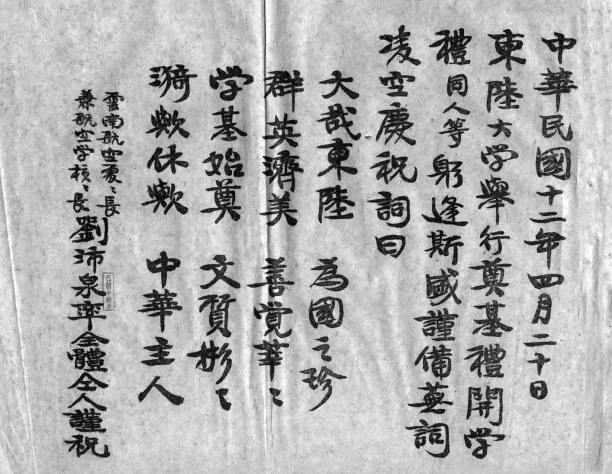 中華民國十二年四月二十日
東陸大学舉行奠基禮開学
禮同人等躬逢斯盛謹備蕪詞
凌空慶祝詞曰
大哉東陸 為國之珍
群英濟美 善覺莘〻
学基始奠 文質彬〻
漪歟休歟 中華主人
雲南航空處〻長
兼航空学校〻長
劉沛泉率全體仝人謹祝